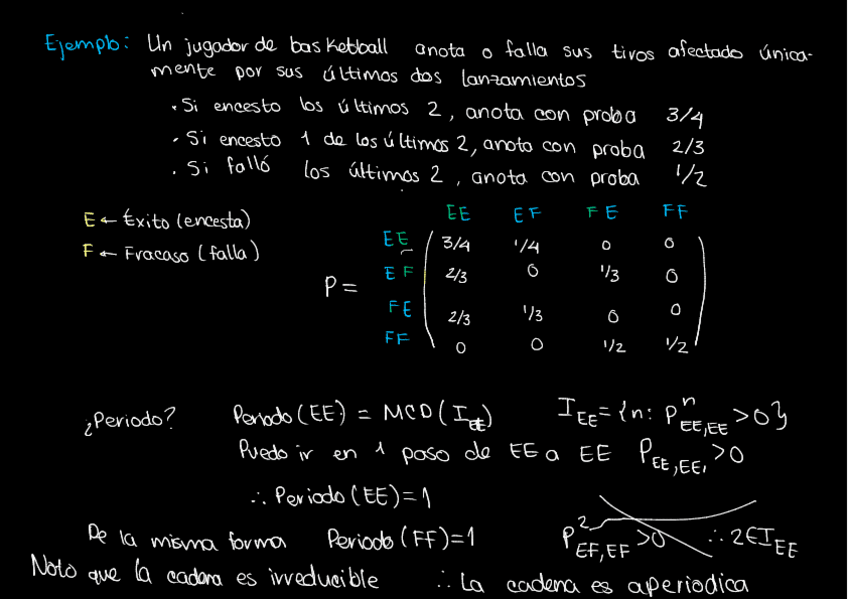 Ejemplo: Un jugador de basketball anota o falla sus tiros afectado única-
mente por sus últimos dos lanzamientos
• Si encesto los últimos 2, anota con proba 3/4
• Si encesto 1 de los últimos 2, anota con proba 2/3
• Si falló los últimos 2, anota con proba 1/2
E ← Éxito (encesta)
F ← Fracaso (falla)
EE EF FE FF
EE 3/4 1/4 0 0
EF 2/3 0 1/3 0
P =
FE 2/3 1/3 0 0
FF 0 0 1/2 1/2
¿Periodo? Periodo(EE) = MCD(I_EE) I_EE = {n: P^n_EE,EE > 0}
Puedo ir en 1 paso de EE a EE P_EE,EE, > 0
∴ Periodo(EE)=1
De la misma forma Periodo(FF)=1 P^2_EF,EF > 0 ∴ 2∈I_EE
Noto que la cadena es irreducible ∴ La cadena es aperiodica